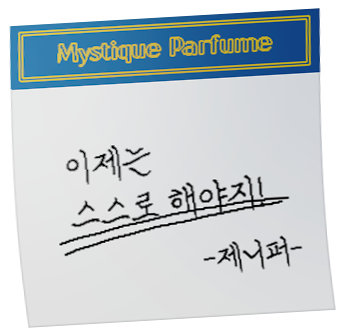 Mystique Parfume
이제는
스스로 해야지!
-제니퍼-